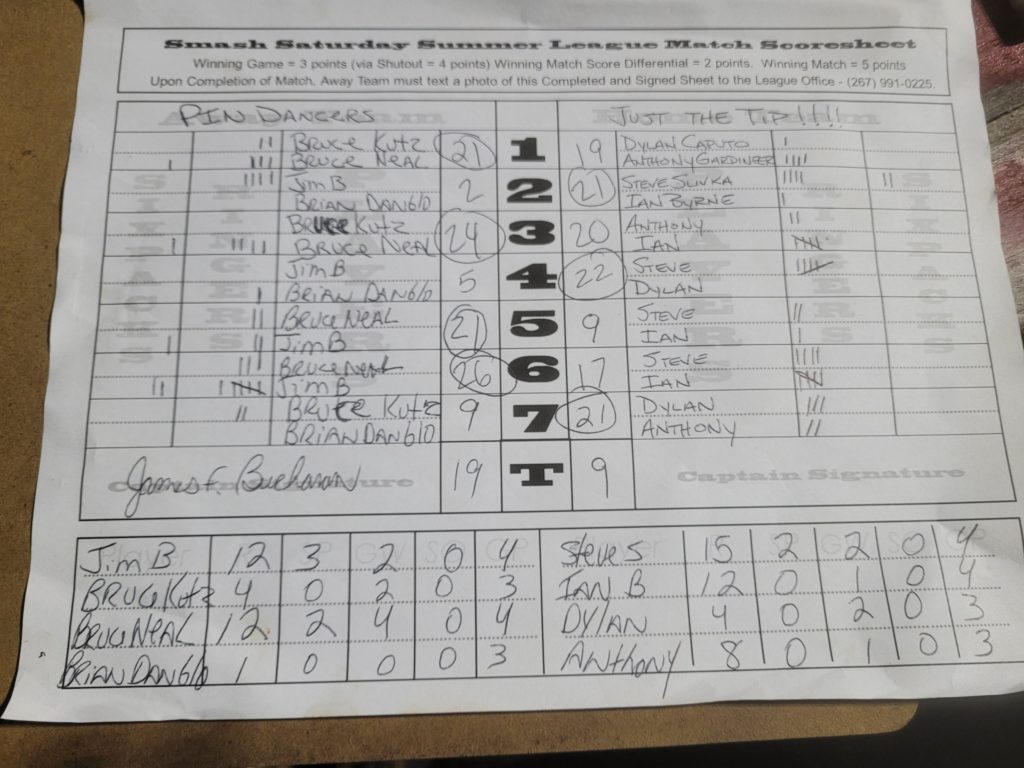 Smash Saturday Summer League Match Scoresheet
Winning Game = 3 points (via Shutout = 4 points) Winning Match Score Differential = 2 points. Winning Match = 5 points
Upon Completion of Match, Away Team must text a photo of this Completed and Signed Sheet to the League Office - (267) 991-0225.
PIN DANCERS JUST THE TIP!!!!
BRUCE KUTZ 21 1 19 DYLAN CAPUTO
BRUCE NEAL ANTHONY GARDINER
Jim B 2 2 21 STEVE SLIVKA
BRIAN DANGLO IAN BYRNE
BRUCE KUTZ 24 3 20 ANTHONY
BRUCE NEAL IAN
Jim B 5 4 22 STEVE
BRIAN DANGLO DYLAN
BRUCE NEAL 21 5 9 STEVE
Jim B IAN
BRUCE NEAL 26 6 17 STEVE
Jim B IAN
BRUCE KUTZ 9 7 21 DYLAN
BRIAN DANGLO ANTHONY
James F. Buchanan 19 T 9 Captain Signature
Jim B 12 3 2 0 4 Steve S 15 2 2 0 4
BRUCE KUTZ 4 0 2 0 3 IAN B 12 0 1 0 4
BRUCE NEAL 12 2 4 0 4 DYLAN 4 0 2 0 3
BRIAN DANGLO 1 0 0 0 3 ANTHONY 8 0 1 0 3